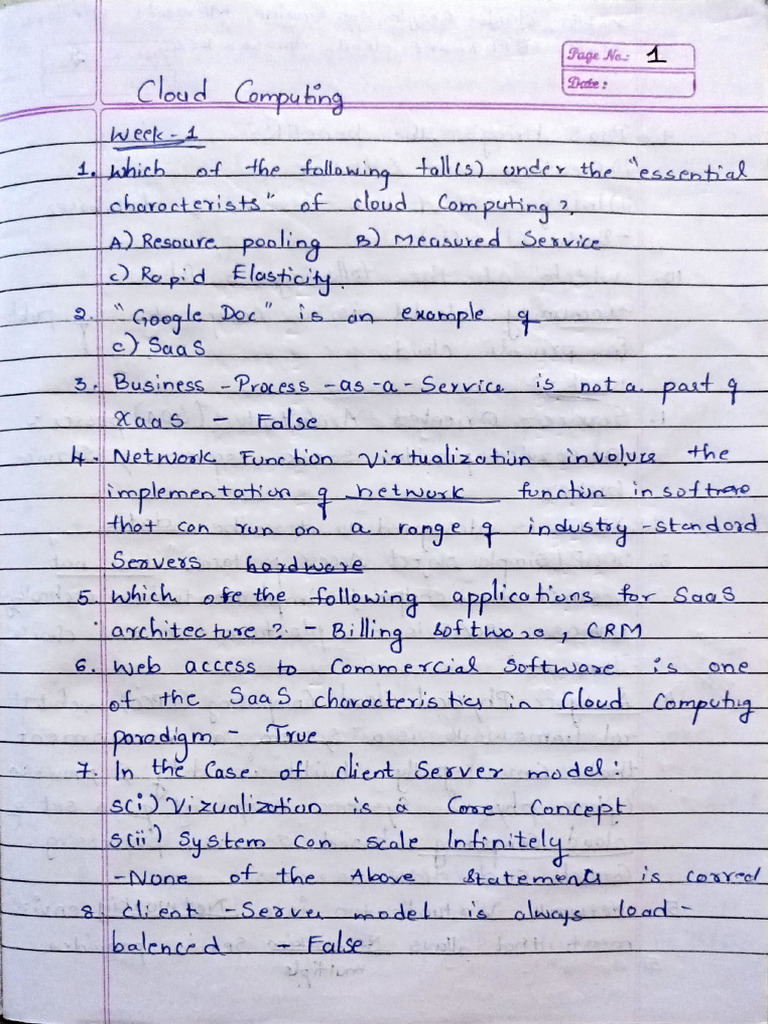 Page No.: 1
Date:
Cloud Computing
Week-1
1. Which of the following fall(s) under the "essential
characterists" of cloud Computing?
A) Resoure pooling B) Measured Service
c) Rapid Elasticity.
2. "Google Doc" is an example of
c) SaaS
3. Business -Process -as-a-Service is not a part of
XaaS - False
4. Network Function Virtualization involves the
implementation of network function in software
that can run on a range of industry-standard
Servers hardware
5. Which are the following applications for SaaS
architecture? - Billing software, CRM
6. Web access to Commercial Software is one
of the SaaS characteristics in Cloud Computing
paradigm - True
7. In the Case of client Server model:
s(i) Vizualization is a Core Concept
s(ii) System can scale Infinitely
-None of the Above statements is corred
8. client -Server model is always load-
balenced - False